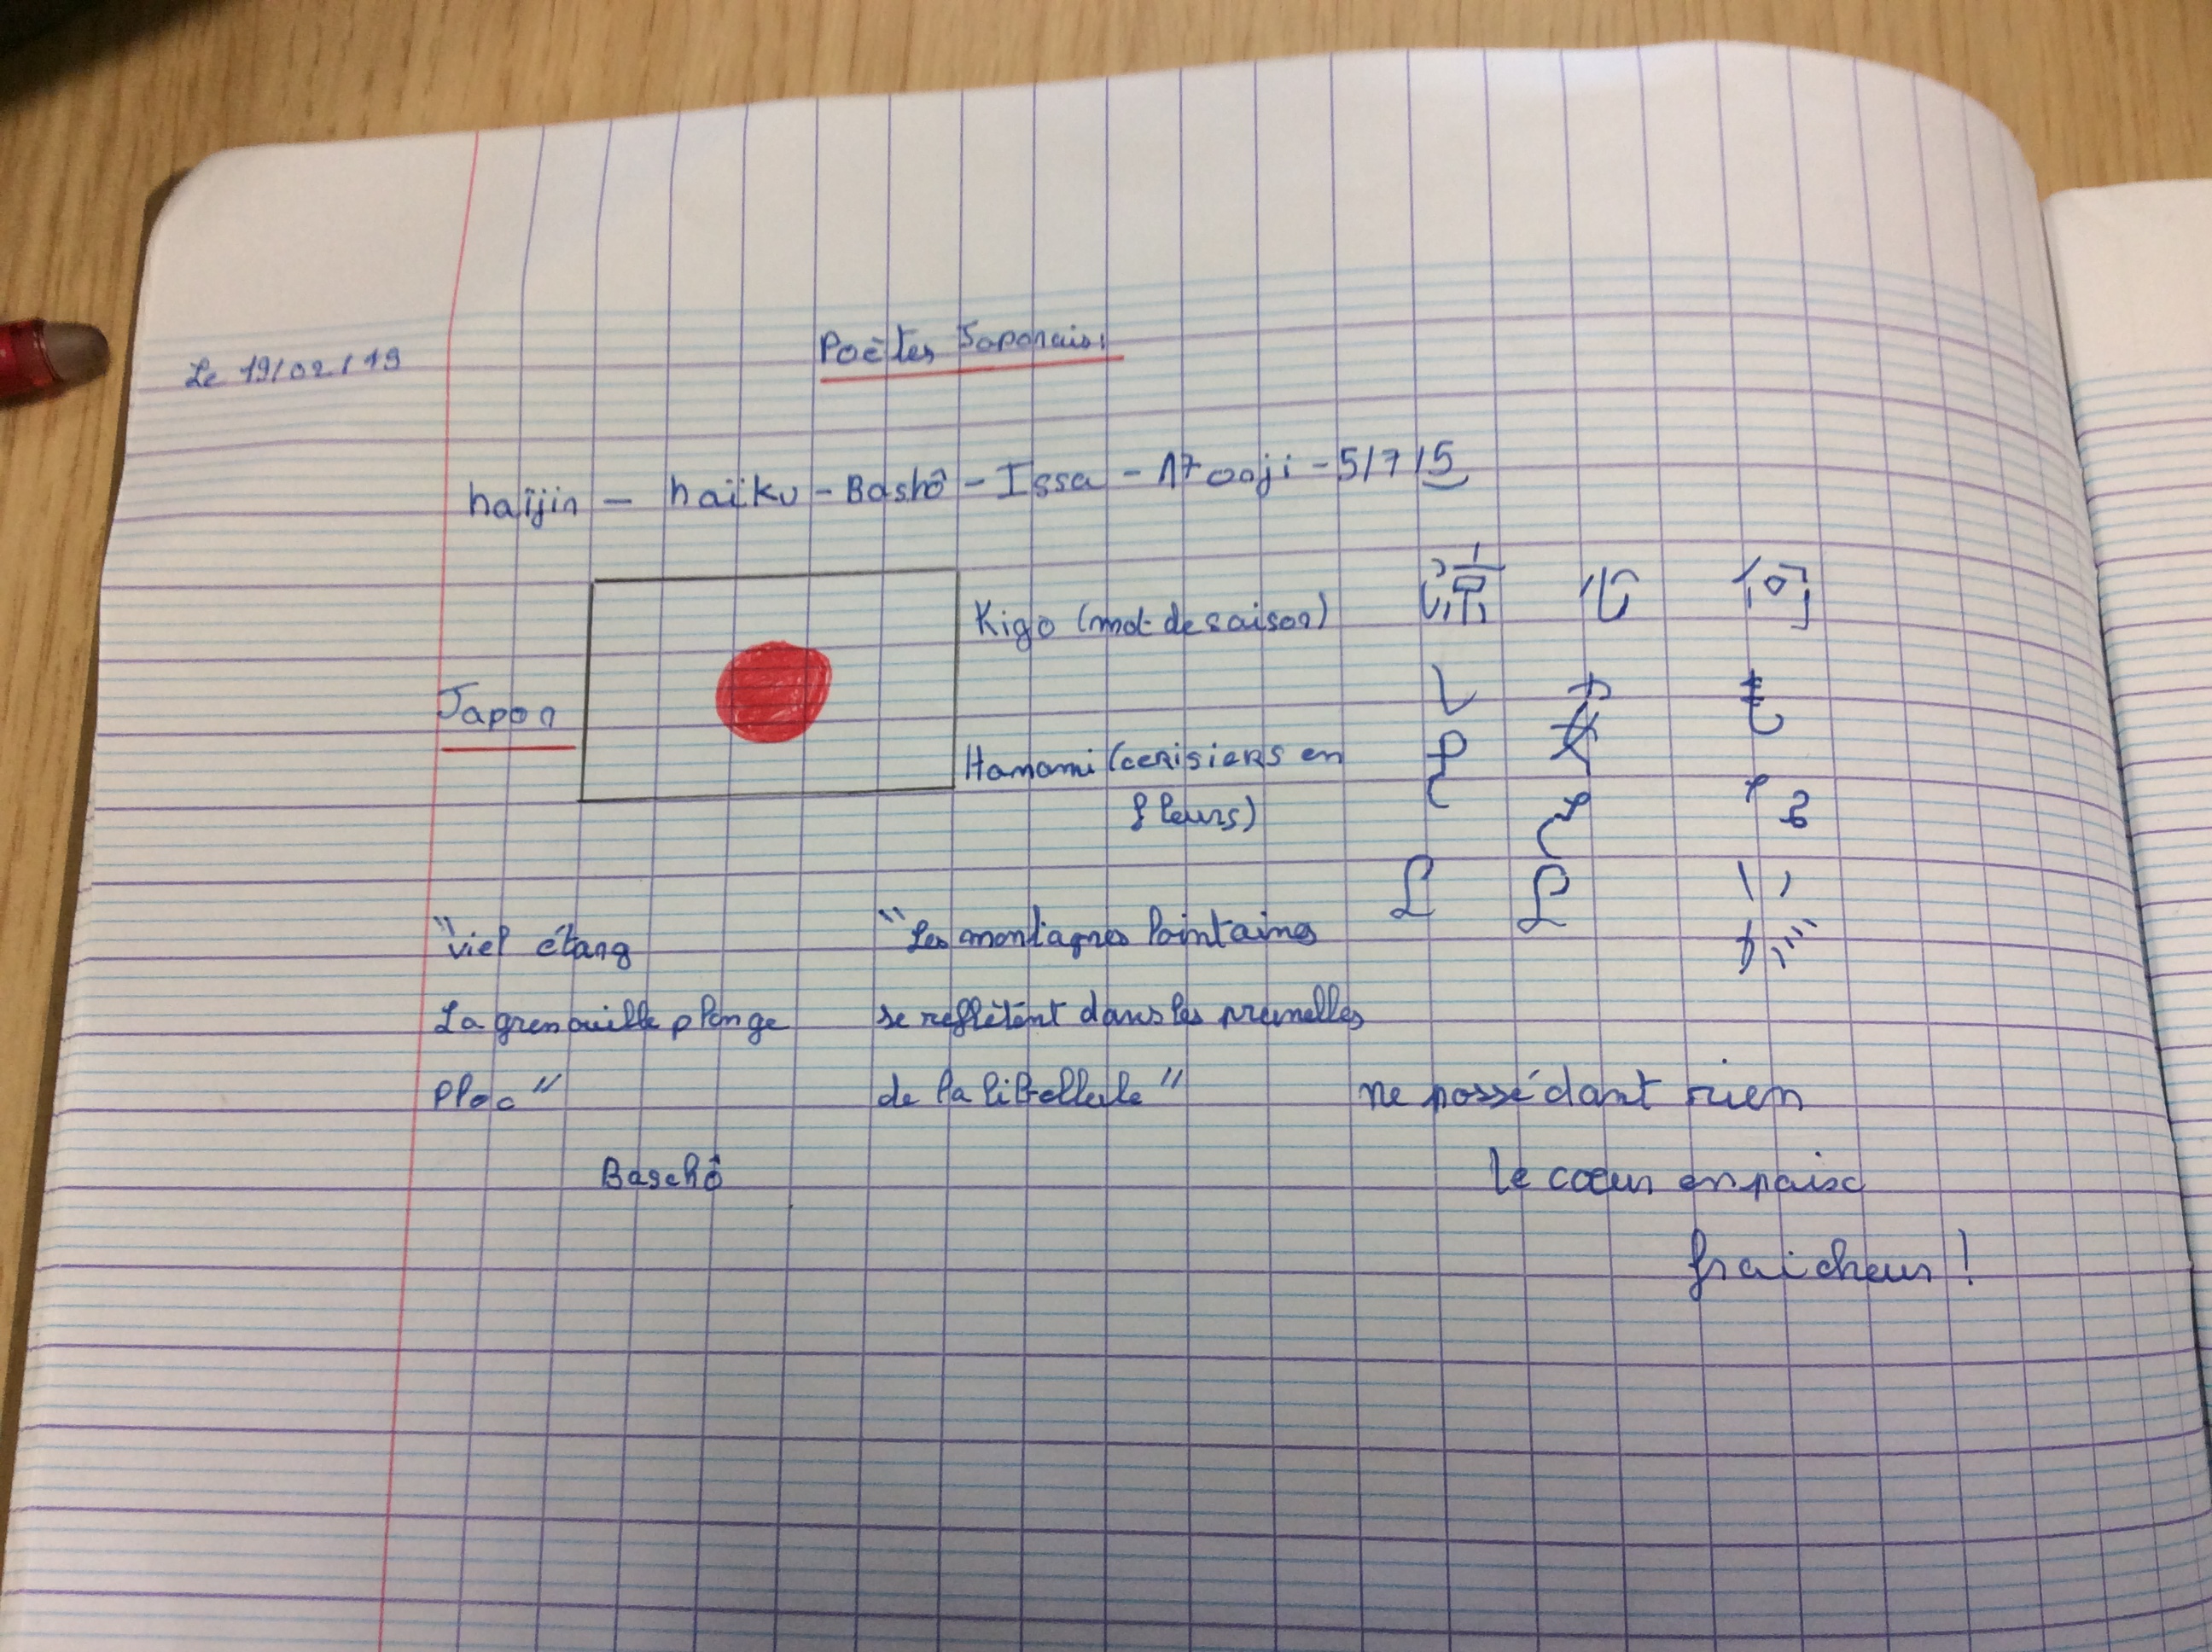 Le 19/02/19
Poètes Japonais:
haïjin – haïku – Bashô – Issa – 17 onji – 5/7/5
Kigo (mot de saison)
Japon
Hanami (cerisiers en
fleurs)
涼 心 何
し か も
"viel étang
La grenouille plonge
Ploc"
Baschô
"Les montagnes lointaines
se reflètent dans les prunelles
de la libellule"
ne possédant rien
le coeur en paix
fraicheur!